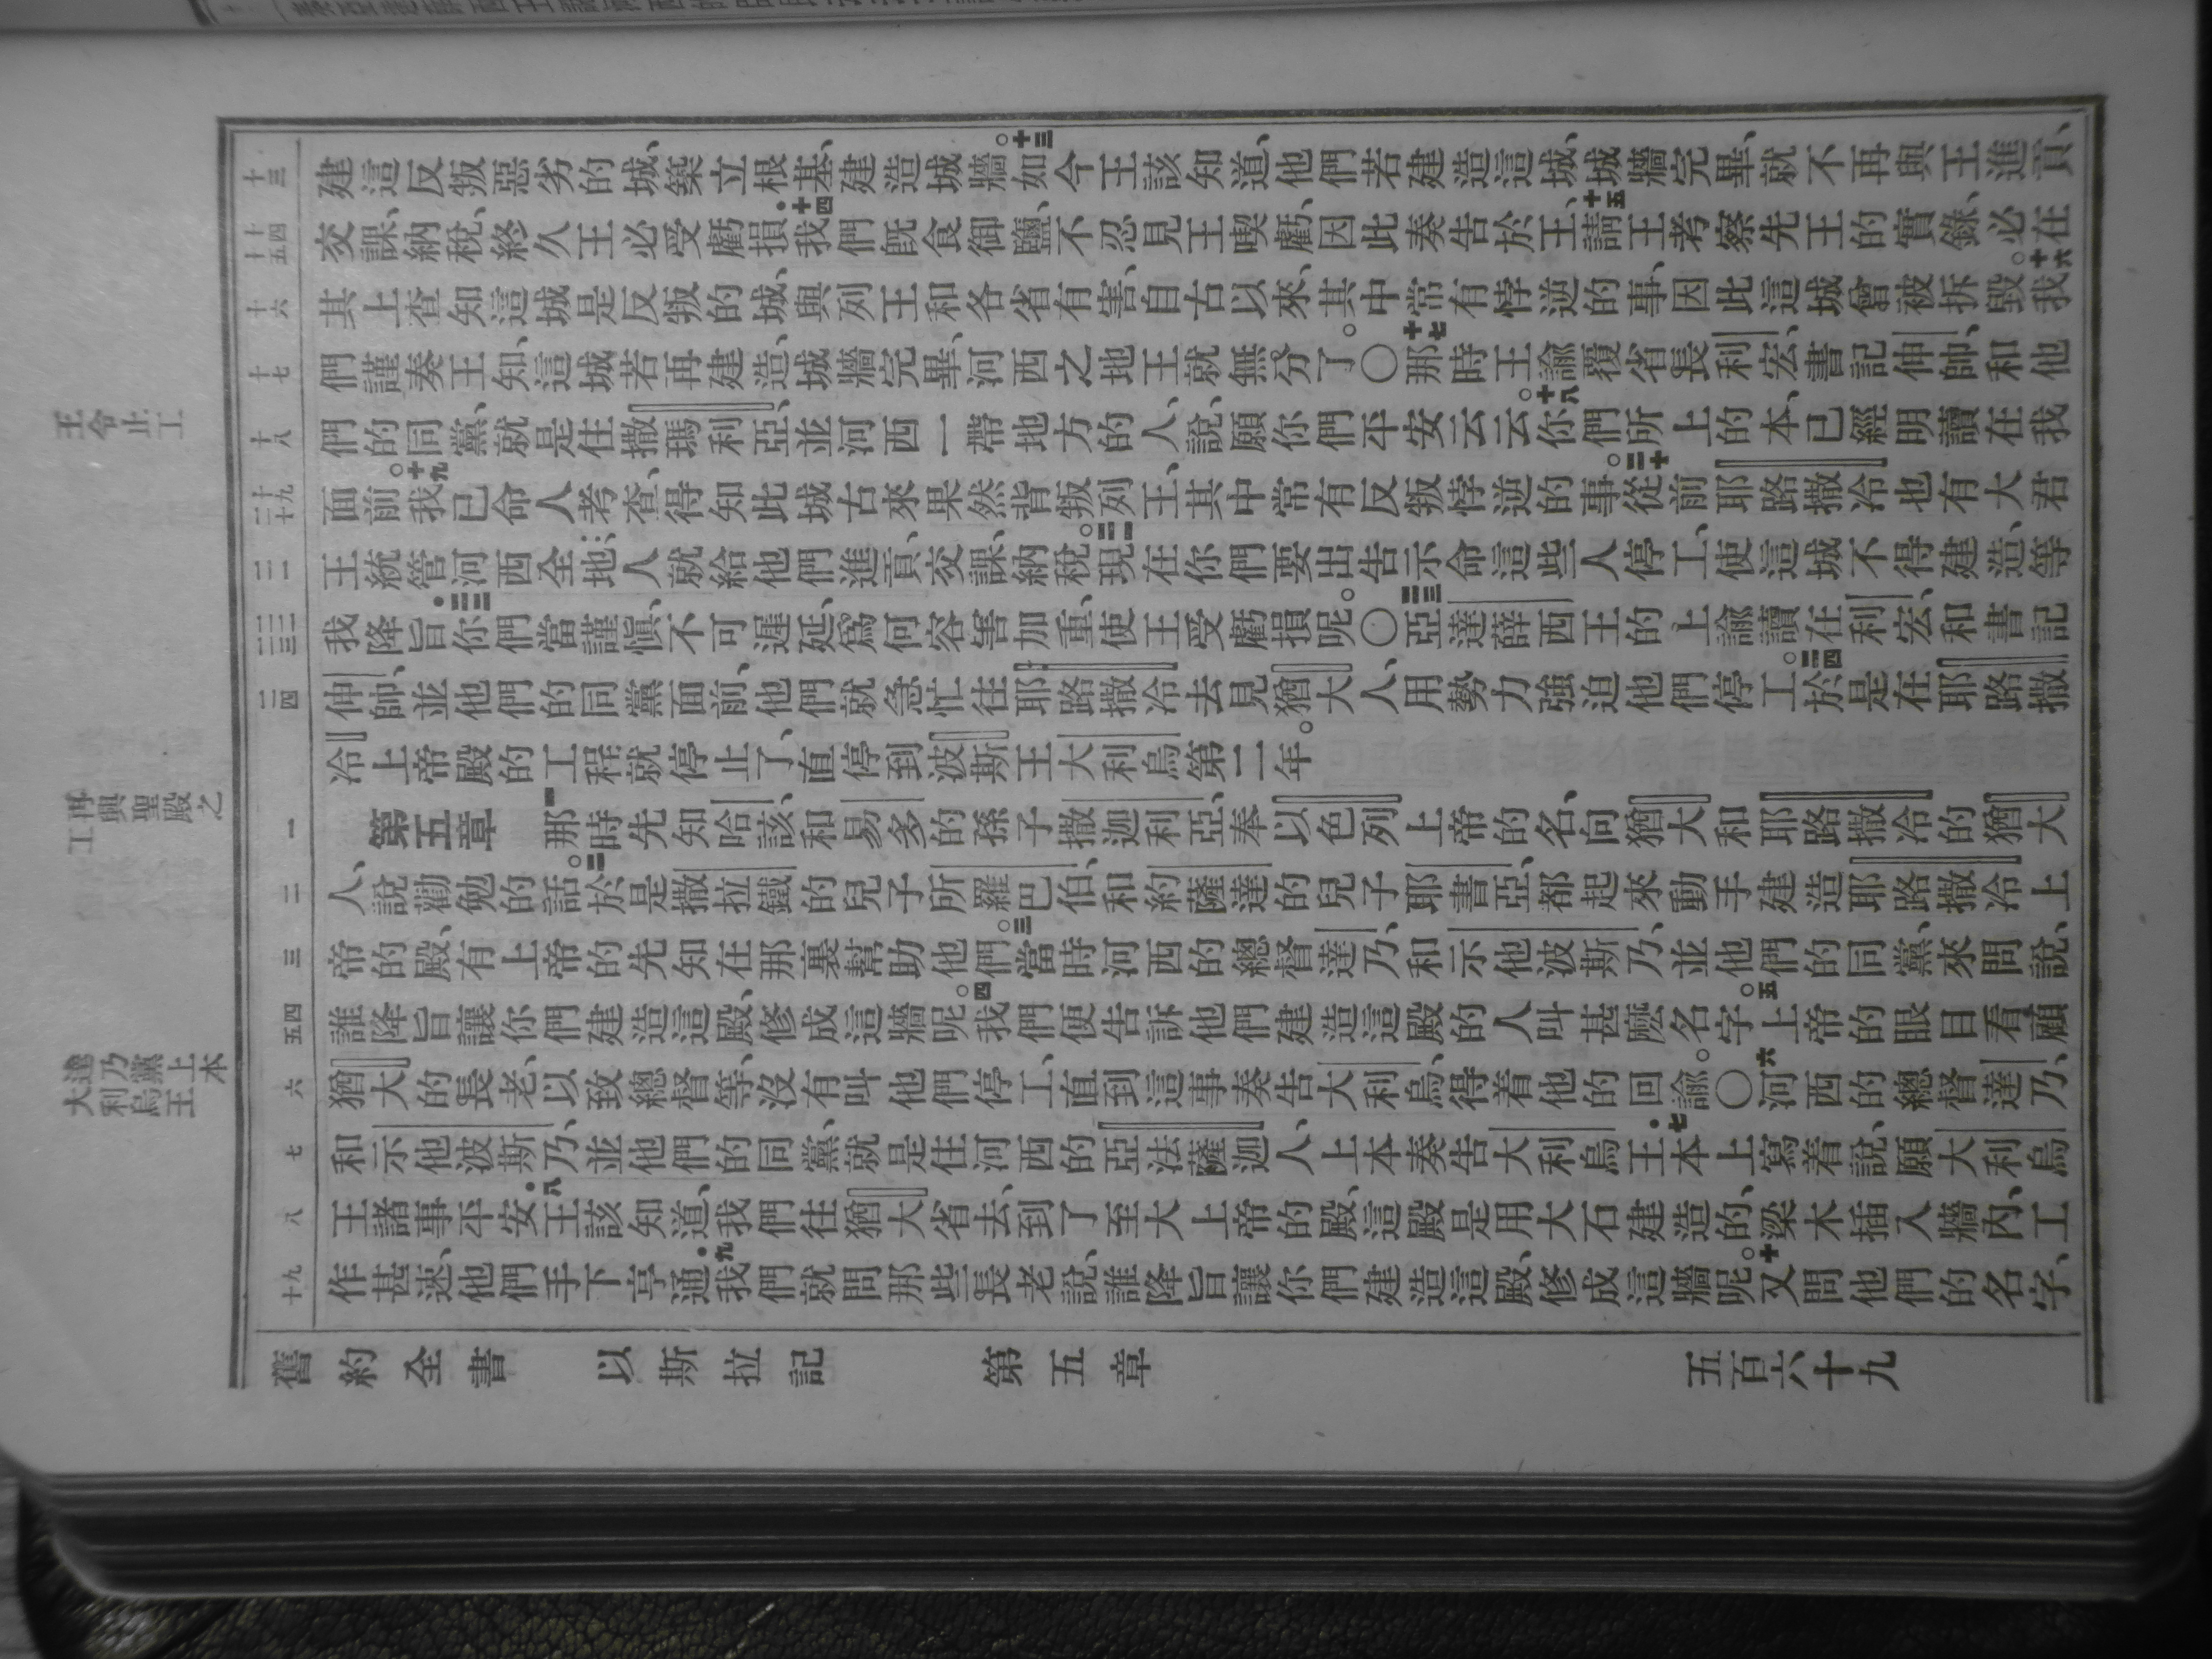 建這反叛惡劣的城、築立根基、建造城牆。十三如今王該知道、他們若建造這城、城牆完畢、就不再與王進貢、
交課、納稅、終久王必受虧損．十四我們旣食御鹽、不忍見王喫虧、因此奏告於王、十五請王考察先王的實錄、必在
其上查知這城是反叛的城、與列王和各省有害、自古以來、其中常有悖逆的事、因此這城曾被拆毀。十六我
們謹奏王知、這城若再建造、城牆完畢、河西之地王就無分了。○十七那時王諭覆省長利宏、書記伸帥、和他
們的同黨、就是住撒瑪利亞、並河西一帶地方的人、說、願你們平安云云。十八你們所上的本、已經明讀在我
面前。十九我已命人考查、得知此城古來果然背叛列王、其中常有反叛悖逆的事。二十從前耶路撒冷也有大君
王統管河西全地、人就給他們進貢、交課、納稅。二一現在你們要出告示命這些人停工、使這城不得建造、等
我降旨．二二你們當謹愼、不可遲延、爲何容害加重、使王受虧損呢。○二三亞達薛西王的上諭讀在利宏、和書記
伸帥、並他們的同黨面前、他們就急忙往耶路撒冷去見猶大人、用勢力強迫他們停工。二四於是在耶路撒
冷上帝殿的工程就停止了、直停到波斯王大利烏第二年。
第五章　一那時先知哈該、和易多的孫子撒迦利亞、奉以色列上帝的名、向猶大和耶路撒冷的猶大
人、說勸勉的話。二於是撒拉鐵的兒子所羅巴伯、和約薩達的兒子耶書亞、都起來動手建造耶路撒冷上
帝的殿、有上帝的先知在那裏幫助他們。三當時河西的總督達乃、和示他波斯乃、並他們的同黨、來問說、
誰降旨讓你們建造這殿、修成這牆呢。四我們便告訴他們建造這殿的人叫甚麼名字。五上帝的眼目看顧
猶大的長老、以致總督等、沒有叫他們停工、直到這事奏告大利烏、得着他的回諭。○六河西的總督達乃、
和示他波斯乃、並他們的同黨、就是住河西的亞法薩迦人、上本奏告大利烏王．七本上寫着說、願大利烏
王諸事平安．八王該知道、我們往猶大省去、到了至大上帝的殿、這殿是用大石建造的、梁木插入牆內、工
作甚速、他們手下亨通．九我們就問那些長老說、誰降旨讓你們建造這殿、修成這牆呢。十又問他們的名字、
十三
十四
十五
十六
十七
十八
十九
二十
二一
二二
二三
二四
一
二
三
四
五
六
七
八
九
十
王令止工
再興聖殿之工
達乃黨上本大利烏王
舊約全書　以斯拉記　第五章　五百六十九